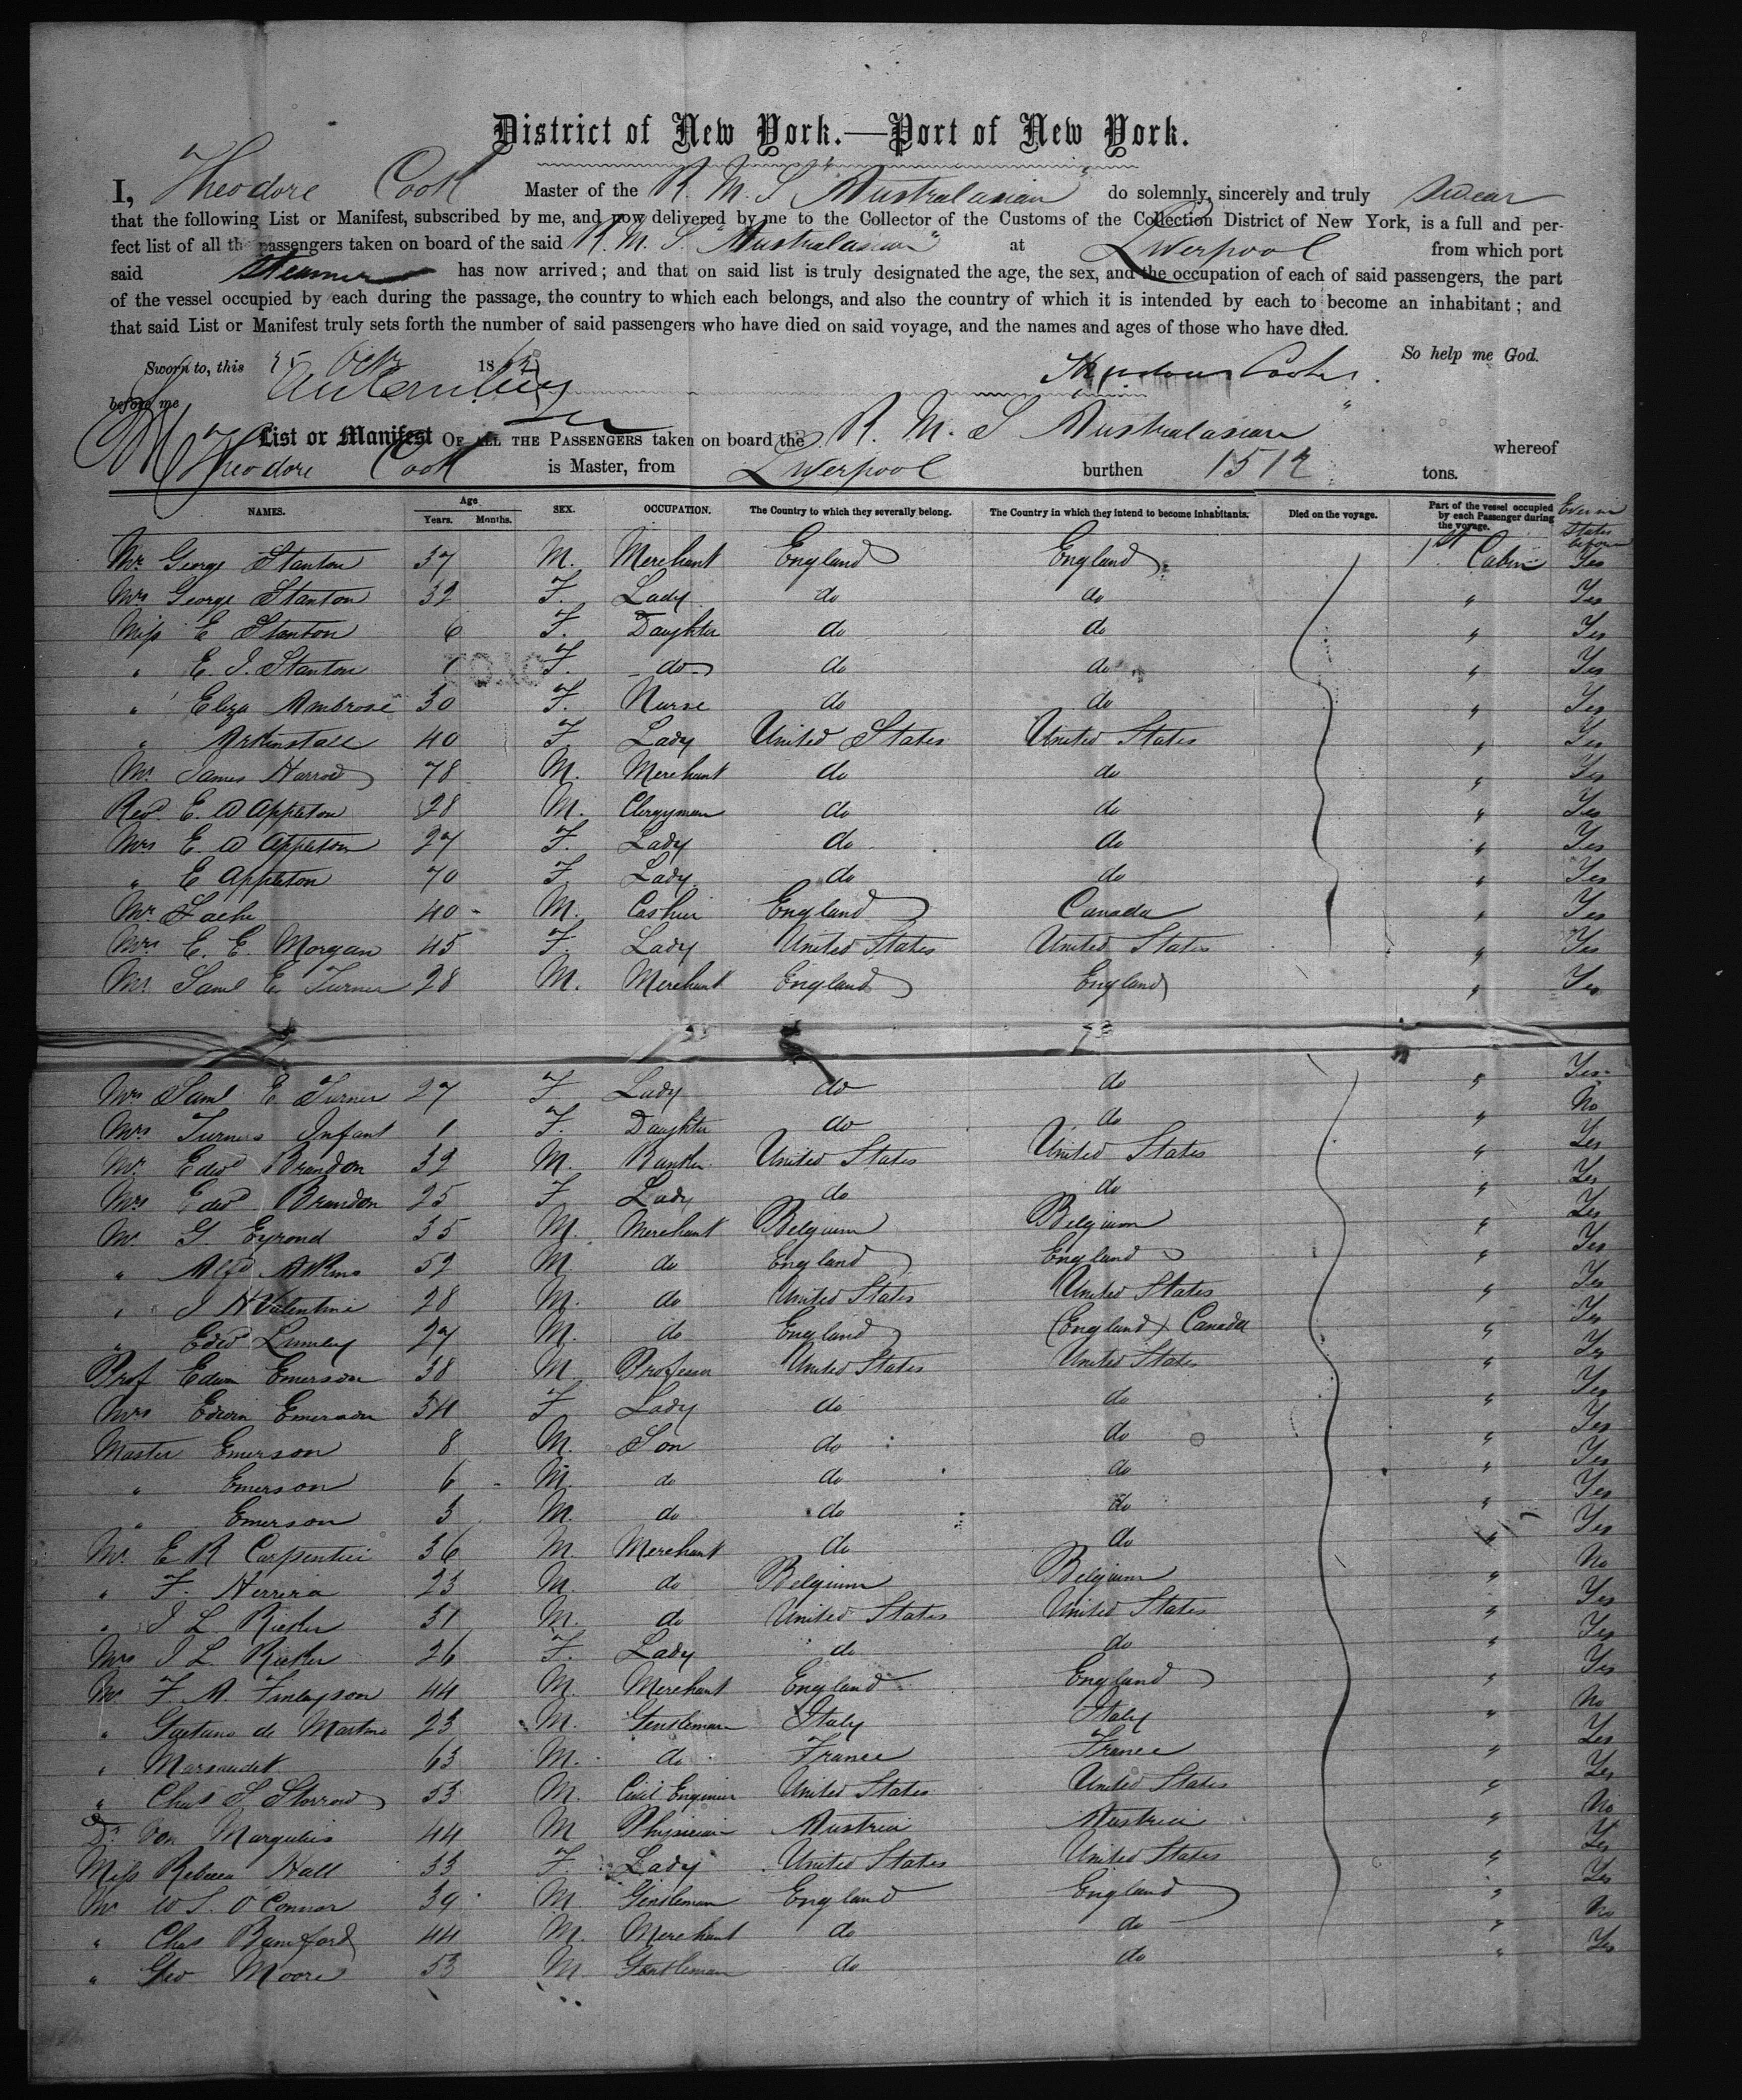 District of New York.—Port of New York.
I, Theodore Cook Master of the R. M. S "Australasian" do solemnly, sincerely and truly swear
that the following List or Manifest, subscribed by me, and now delivered by me to the Collector of the Customs of the Collection District of New York, is a full and per-
fect list of all the passengers taken on board of the said R. M. S. "Australasian" at Liverpool from which port
said Steamer has now arrived; and that on said list is truly designated the age, the sex, and the occupation of each of said passengers, the part
of the vessel occupied by each during the passage, the country to which each belongs, and also the country of which it is intended by each to become an inhabitant; and
that said List or Manifest truly sets forth the number of said passengers who have died on said voyage, and the names and ages of those who have died.
So help me God.
Sworn to, this 25 Octr 186
before me
List or Manifest OF ALL THE PASSENGERS taken on board the R. M. S Australasian" whereof
Theodore Cook is Master, from Liverpool burthen 1512 tons.
NAMES. Age Years. Months. SEX. OCCUPATION. The Country to which they severally belong. The Country in which they intend to become inhabitants. Died on the voyage. Part of the vessel occupied by each Passenger during the voyage. Ever in States before
Mr George Stanton 37 M. Merchant England England 1st Cabin Yes
Mrs George Stanton 32 F. Lady do do " Yes
Miss E Stanton 6 F. Daughter do do " Yes
" E. J. Stanton F. do do do " Yes
" Eliza Ambrose 30 F. Nurse do do " Yes
" Arkinstall 40 F Lady United States United States " Yes
Mr James Harrod 78 M. Merchant do do " Yes
Revd. E. W Appleton 28 M. Clergyman do do " Yes
Mrs E. W Appleton 27 F. Lady do do " Yes
" E Appleton 70 F. Lady do do " Yes
Mr 40 M. Cashier England Canada " Yes
Mrs E. E. Morgan 45 F. Lady United States United States " Yes
Mr Saml E Turner 28 M. Merchant England England " Yes
Mrs Saml E Turner 27 F Lady do do " Yes
Mrs Turners Infant 1 F. Daughter do do " No
Mr Edwd Brandon 32 M. Banker United States United States " Yes
Mrs Edwd Brandon 25 F Lady do do " Yes
Mr G. Eyrond 35 M. Merchant Belgium Belgium " Yes
" Alfd Atkins 52 M. do England England " Yes
" J H Valentine 28 M. do United States United States " Yes
" Edwd Lumley 27 M. do England (England) Canada " Yes
Prof Edwin Emerson 38 M Professor United States United States " Yes
Mrs Edwin Emerson 34 F Lady do do " Yes
Master Emerson 8 M. Son do do " Yes
" Emerson 6 M. do do do " Yes
" Emerson 3 M. do do do " Yes
Mr E R Carpentier 36 M. Merchant do do " Yes
" F. Herrera 23 M. do Belgium Belgium " No
" J L. Rieker 31 M. do United States United States " Yes
Mrs J L Rieker 26 F. Lady do do " Yes
Mr F. A. Finlayson 44 M. Merchant England England " Yes
" Gaetano de Martino 23 M. Gentleman Italy Italy " No
" Marsaudet 63 M. do France France " Yes
" Chas S Storrow 53 M. Civil Engineer United States United States " Yes
Dr Von Margulies 44 M Physician Austria Austria " No
Miss Rebecca Hall 33 F. Lady United States United States " Yes
Mr W S. O'Connor 39 M. Gentleman England England " Yes
" Chas Bamford 44 M. Merchant do do " No
" Geo Moore 53 M Gentleman do do " Yes